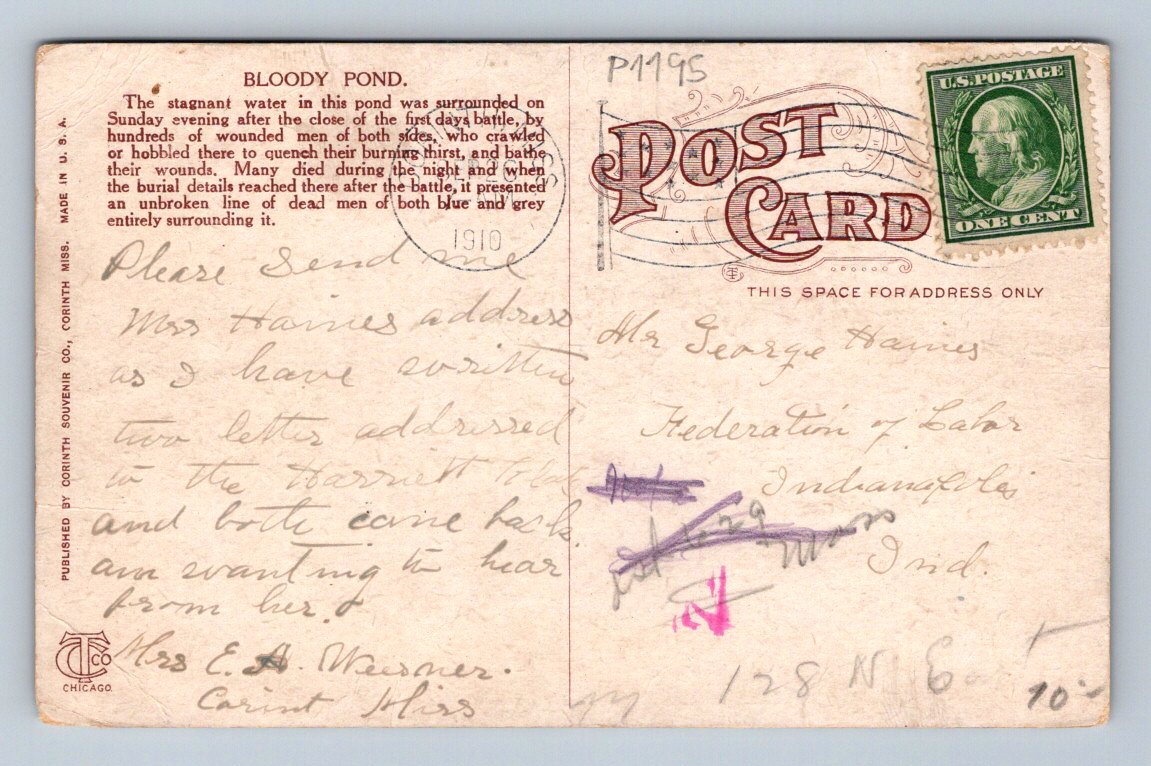 BLOODY POND.
The stagnant water in this pond was surrounded on
Sunday evening after the close of the first days battle, by
hundreds of wounded men of both sides, who crawled
or hobbled there to quench their burning thirst, and bathe
their wounds. Many died during the night and when
the burial details reached there after the battle, it presented
an unbroken line of dead men of both blue and grey
entirely surrounding it.
Please send me
Mrs Haines address
as I have written
two letters addressed
to the Harriett
and both came back.
am wanting to hear
from her.
Mrs E. A.
Corint Miss
PUBLISHED BY CORINTH SOUVENIR CO., CORINTH MISS. MADE IN U. S. A.
TCT CO
CHICAGO.
1910
P1195
POST
CARD
U.S. POSTAGE
ONE CENT
THIS SPACE FOR ADDRESS ONLY
Mr George Haines
Federation of Labor
Indianapolis
Ind.
629
Mass
128 N E
10